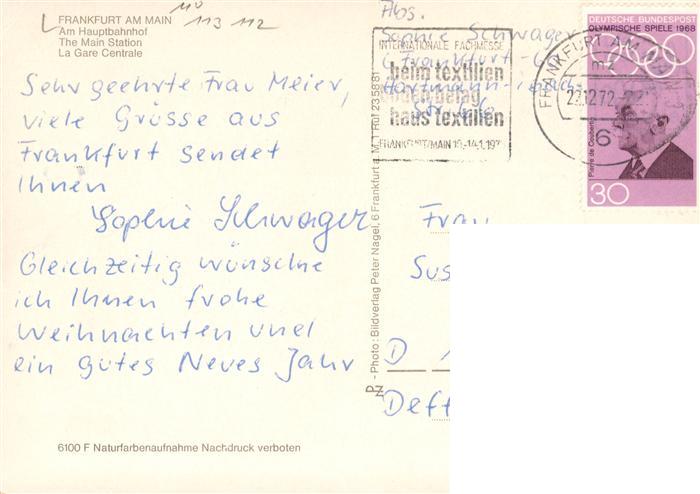 FRANKFURT AM MAIN
Am Hauptbahnhof
The Main Station
La Gare Centrale
110
113 112
Sehr geehrte Frau Meier,
viele Grüsse aus
Frankfurt sendet
Ihnen
Sophie Schwager
Gleichzeitig wünsche
ich Ihnen frohe
Weihnachten und
ein gutes Neues Jahr
6100 F Naturfarbenaufnahme Nachdruck verboten
PN - Photo: Bildverlag Peter Nagel, 6 Frankfurt a. M. 1 Ruf 235881
Abs.
Sophie Schwager
6 Frankfurt
INTERNATIONALE FACHMESSE
heimtextilien
bodenbelag
haustextilien
FRANKFURT/MAIN
FRANKFURT AM MAIN
mz
6
DEUTSCHE BUNDESPOST
OLYMPISCHE SPIELE 1968
Pierre de Coubertin
30
Frau
Sus
D
Deff